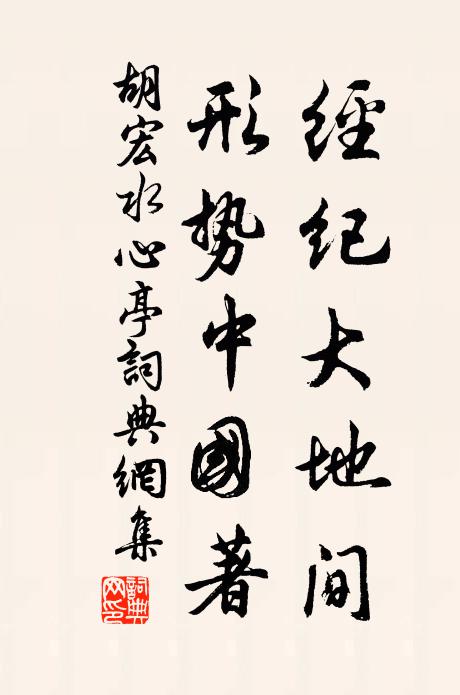 經紀大地间
形势中國著
胡宏水心亭詞典網集
詞典网印